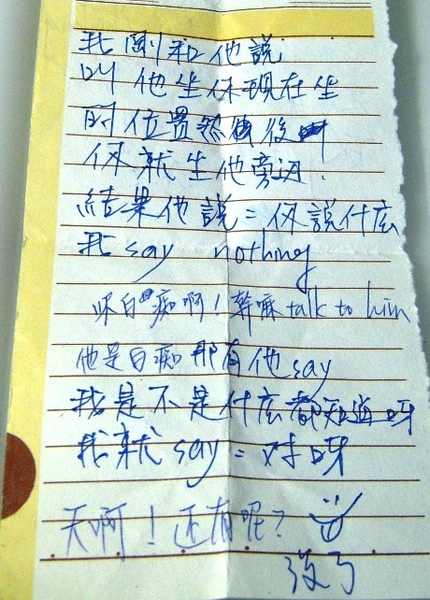 我剛和他說
叫他坐你現在坐
的位置然後
你就坐他旁边.
結果他說=你說什麼
我 say nothing
你白痴啊!幹嘛 talk to him
他是白痴那有他say
我是不是什麼都知道呀
我就say=对呀
天啊!还有呢?
沒了